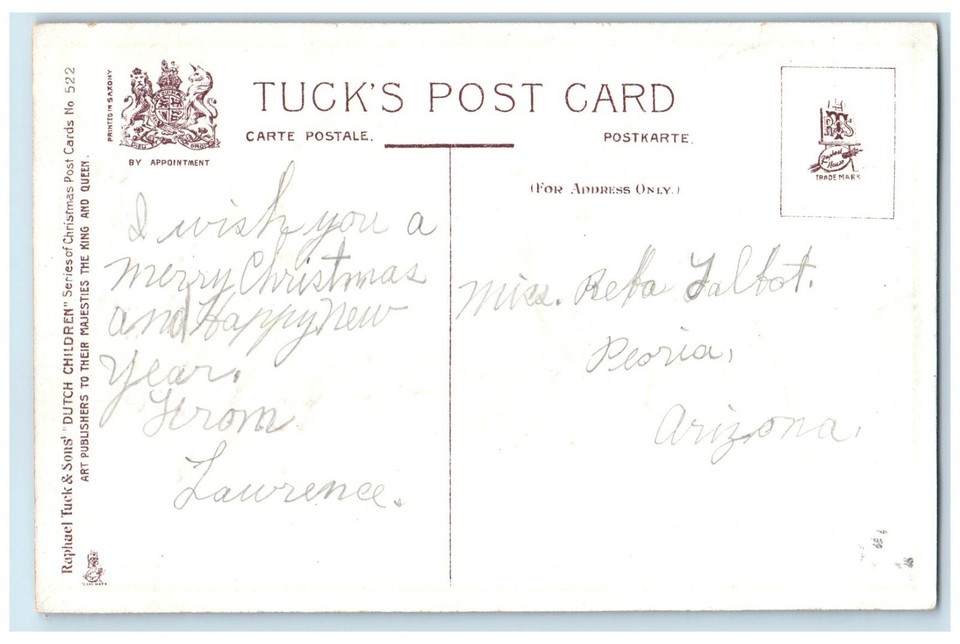 TUCK'S POST CARD
CARTE POSTALE. POSTKARTE.
BY APPOINTMENT
(FOR ADDRESS ONLY.)
TRADE MARK
PRINTED IN SAXONY
Raphael Tuck & Sons' "DUTCH CHILDREN" Series of Christmas Post Cards No 522
ART PUBLISHERS TO THEIR MAJESTIES THE KING AND QUEEN.
I wish you a
merry Christmas
and Happy New
Year.
From
Lawrence.
Miss. Reba Talbot.
Peoria,
Arizona.